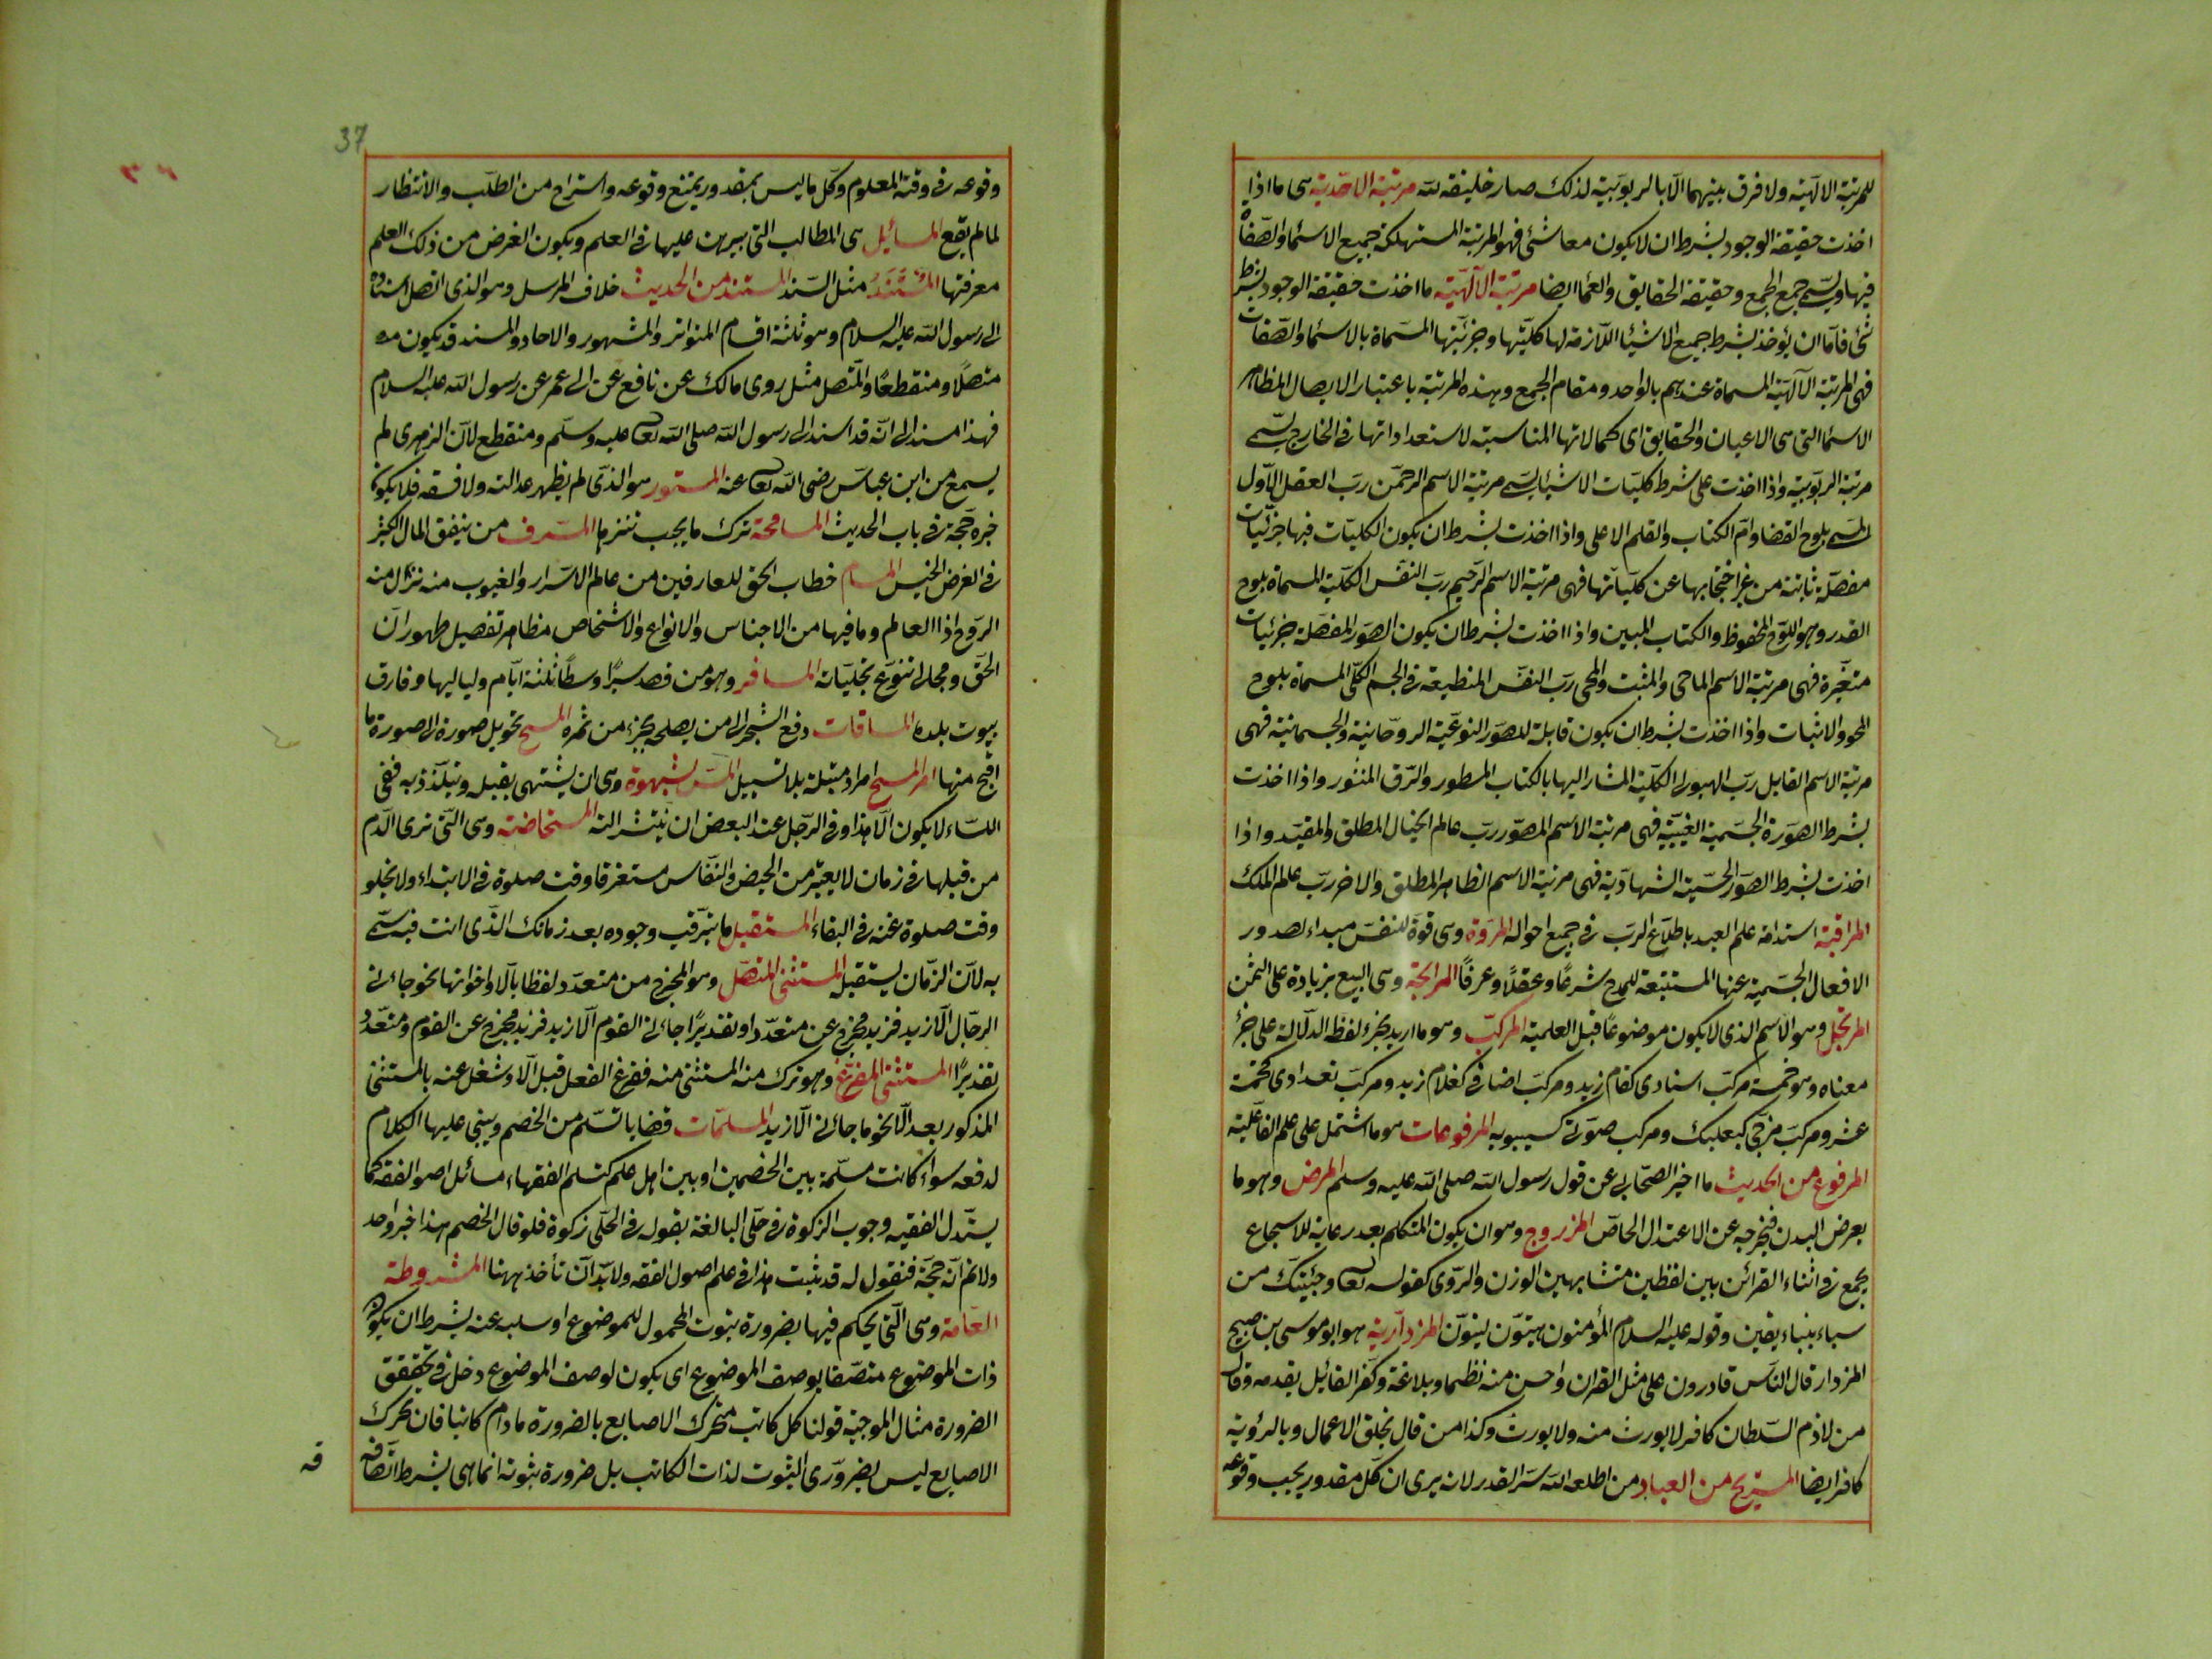 للمرتبة الالٓهيّة ولا فرق بينهما الّا بالربوبيّة لذلك صار خليفة لله مرتبة الاحَديّة هى ما اذا
اخذت حقيقة الوجود بشرط ان لا يكون معها شئ فهو المرتبة المستهلكة جميع الاسْما والصّفاة
فيها ويسمّى جمع الجمع وحقيقة الحقايق والعما ايضا مرتبة الالٓهيّة ما اخذت حقيقة الوجود بشرط
شئ فامّا ان يؤخذ بشرط جميع الاشيْا اللّازمة لها كليّتها وجزئيّتها المسمّاة بالاسْما والصّفات
فهى المرتبة الالٓهيّة المسماة عندهم بالواحد ومقام الجمع وهذه المرتبة باعتبار الايصال لمظاهر
الاسْما التى هى الاعيان والحقايق اى كمالاتها المناسبة لاستعداداتها فى الخارج يسمّى
مرتبة الربوبيّة واذا اخذت على شرط كليّات الاشيا يسمّى مرتبة الاسم الرحمن ربّ العقل الاّول
المسمى بلوح القضا وامّ الكتاب والقلم الاعلى واذا اخذت بشرط ان يكون الكليّات فيها جزئيّات
مفصّلة ثابتة من غير احتجابها عن كليّاتها فهى مرتبة الاسم الرّحيم ربّ النفس الكليّة المسماة بلوح
القدر وهو اللّوح المحفوظ والكتاب المبين واذا اخذت بشرط ان يكون الصور المفصّلة جزئيات
متغيّرة فهى مرتبة الاسم الماحى والمثبت والمحى ربّ النفس المنطبعة فى الجسم الكلّى المسماة بلوح
المحو والاثبات واذا اخذت بشرط ان يكون قابلة للصور النوعيّة الروحانيّة والجسمانيّة فهى
مرتبة الاسم القابل ربّ الهيولى الكليّة المشار اليها بالكتاب المسطور والرّق المنثور واذا اخذت
بشرط الصورة الجسميّة الغيبيّة فهى مرتبة الاسم المصوّر ربّ عالم الخيال المطلق والمقيّد واذا
اخذت بشرط الصور الحسّية الشهاديّة فهى مرتبة الاسم الظاهر المطلق والاخر ربّ علم الملك
المراقبة استدامة علم العبد باطلاع الربّ فى جميع احواله المروّة وهى قوّة للنفس مبداء لصدور
الافعال الجسميّة عنها المستتبعة للمدح شرعًا وعقلًا وعرفًا المرابحة وهى البيع بزيادة على الثمن
المرتجل وهو الاسم الذى لا يكون موضوعًا قبل العلمية المركّب وهو ما اريد بجزء لفظه الدّلالة على جزء
معناه وهو خمسة مركّب اسنادى كقام زيد ومركّب اضافى كغلام زيد ومركّب تعدادى كخمسة
عشر ومركّب مزجى كبعلبك ومركب صوتى كسيبويه المرفوعات هو ما اشتمل على علم الفاعليّة
المرفوع من الحديث ما اخبر الصّحابى عن قول رسول الله صلى الله عليه وسلم المرض وهو ما
يعرض البدن فيخرجه عن الاعتدال الخاصّ المزروج وهو ان يكون المتكلم بعد رعاية للاسجاع
يجمع فى اثناء القرائن بين لفظين متشابهين الوزن والرّوى كقوله تعا وجئيتك من
سباء بنباء يقين وقوله عليه السلام المؤمنون هيّنون لينون المزداريّة هو ابو موسى بن صبيح
المزدار قال النّاس قادرون على مثل القران واحسن منه نظما وبلاغة وكفّر القائيل بقدمه وقال
من لازم السّلطان كافر لا يورث منه ولا يورث وكذا من قال بخلق الاعمال وبالرؤية
كافر ايضا المستريح من العباد من اطلعه الله سرّ القدر لانه يرى ان كلّ مقدور يجب وقوعه
37
وقوعه فى وقته المعلوم وكلّ ما ليس بمقدور يمتنع وقوعه واستراح من الطلب والانتظار
لما لم يقع المسائيل هى المطالب التى يبرهن عليها فى العلم ويكون الغرض من ذلك العلم
معرفتها المُسْتَنَدُ مثل السّند المستند من الحديث خلاف المرسل وهو الذى اتصل اسناده
الى رسول الله عليه السلام وهو ثلثة اقسام المتواتر والمشهور والاحاد والمسند قد يكون
متصلًا ومنقطعًا والمتّصل مثل روى مالك عن نافع عن الى عمر عن رسول الله عليه السلام
فهذا مسند الى انّه قد اسند الى رسول الله صلى الله تعا عليه وسلّم ومنقطع لانّ الزهرى لم
يسمع من ابن عباس رضى الله تعا عنه المستور هو الذّى لم يظهر عدالته ولا فسقه فلا يكون
خبره حجّة فى باب الحديث المسامحة ترك ما يجب تنزها المسّرف من ينفق المال الكثير
فى الغرض الخيس المسام خطاب الحق للعارفين من عالم الاسّرار والغيوب منه نزّال منه
الرّوح اذا العالم وما فيها من الاجناس والانواع والاشخاص مظاهر تفصيل ظهورات
الحّق ومجالى تنوّع تجليّاته المسافر وهو من قصد سيرًا وسطًا ثلثة ايّام ولياليها وفارق
بيوت بلده المساقات دفع الشجر الى من يصلحه بجزء من ثمره المسخ تحويل صورة الى صورة ما
اقبح منها المسّ بشهوة وهى ان يشتهى بقبله ويتلذذ به ففى
النساء لا يكون الّا هذا وفى الرّجل عند البعض ان ينتشر الته المستحاضة وهى التّى ترى الدّم
من قبلها فى زمان لا يعتبر من الحيض والنفاس مستغرقا وقت صلوة فى الابتداء ولا يخلو
وقت صلوة عنه فى البقاء المستقبل ما يترقب وجوده بعد زمانك الذّى انت فيه سمّى
به لانّ الزّمان يستقبل المستثنى المتصّل وهو المخرج من متعدّد لفظا بآلا واخواتها نحو جاءنى
الرجّال الّا زيد فزيد مخرج عن متعدّد او تقديرًا جاءنى القوم الّا زيد فزيد مخرج عن القوم ومتعدّد
تقديرًا المستثنى المفرّغ وهو ترك منه المستثنى منه ففرغ الفعل قبل الّا وشغل عنه بالمستثنى
المذكور بعد الّا نحو ما جاءنى الّا زيد المسلمّات قضايا تسلّم من الخصم ويبنى عليها الكلام
لدفعه سواء كانت مسلّمة بين الخصمين او بين اهل علم كتسلم الفقهاء مسائل اصول الفقه كما
يستدل الفقيه وجوب الزكوة فى حلّى البالغة بقوله فى الحلّى زكوة فلو قال الخصم هذا خبر واحد
ولانم انّه حجّة فنقول له قد يثبت هذا فى علم اصول الفقه ولا بدّ ان تأخذ ههنا المشروطة
العامّة وهى الّتى يحكم فيها بضرورة ثبوت المحمول للموضوع او سلبه عنه بشرط ان يكون
ذات الموضوع متصّفا بوصف الموضوع اى يكون لوصف الموضوع دخل فى تحقّق
الضرورة مثال الموجبة قولنا كل كاتب متحرك الاصابع بالضرورة ما دام كاتبا فان تحرك
الاصابع ليس بضرورّى الثبوت لذات الكاتب بل ضرورة ثبوته انما هى بشرط اتّصافه